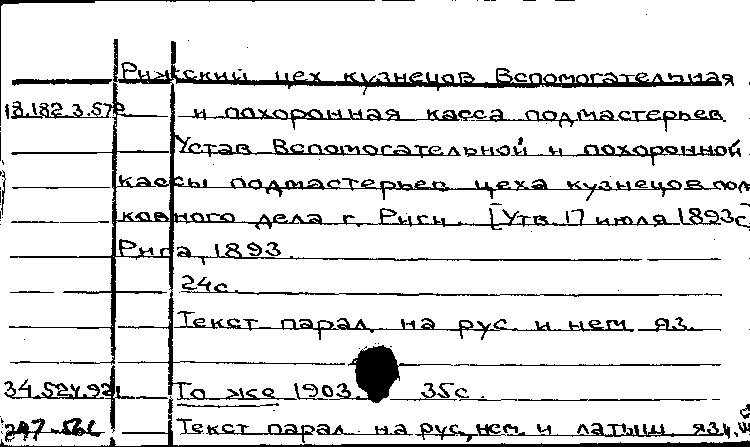 Рижский цех кузнецов Вспомогательная
18.182.3.572 и похоронная касса подмастерьев
Устав Вспомогательной и похоронной
кассы подмастерьев цеха кузнецов
ковного дела г. Риги. [Утв. 17 июля 1893г
Рига, 1893.
24с.
Текст парал. на рус. и нем. яз.
34.524.921 То же 1903. 35с.
Текст парал. на рус., нем. и латыш. яз.